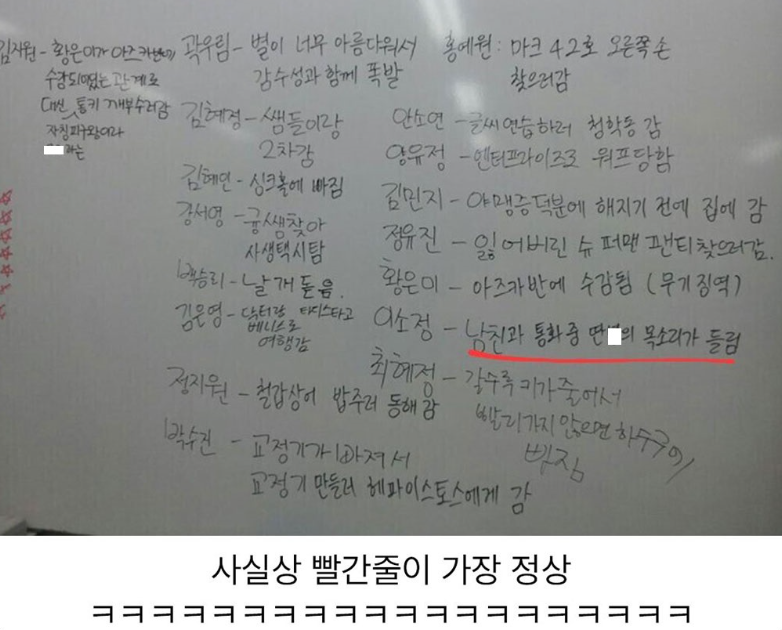 김지원 - 황은미가 아즈카반에
수감되었는 관계로
대신 통키 깨부수러감
자칭피구왕이라
라는
곽우림 - 별이 너무 아름다워서
감수성과 함께 폭발
김혜정 - 쌤들이랑
2차감
김혜인 - 싱크홀에 빠짐
강서영 - 쌤찾아
사생택시탐
백승리 - 날개 돋음.
김은영 - 닥터랑 타디스타고
베니스로
여행감
정지원 - 철갑상어 밥주러 동해 감
박수진 - 교정기가 빠져서
교정기 만들러 헤파이스토스에게 감
홍예원 : 마크 42호 오른쪽 손
찾으러감
안소연 - 글씨연습하러 청학동 감
양유정 - 엔터프라이즈로 워프당함
김민지 - 야맹증덕분에 해지기 전에 집에 감
정유진 - 잃어버린 슈퍼맨 팬티찾으러감.
황은미 - 아즈카반에 수감됨 (무기징역)
이소정 - 남친과 통화 중 딴 의 목소리가 들림
최혜정 - 갈수록 키가 줄어서
빨리가지 않으면 하수구에
빠짐
사실상 빨간줄이 가장 정상
ㅋㅋㅋㅋㅋㅋㅋㅋㅋㅋㅋㅋㅋㅋㅋㅋㅋㅋㅋㅋㅋㅋ